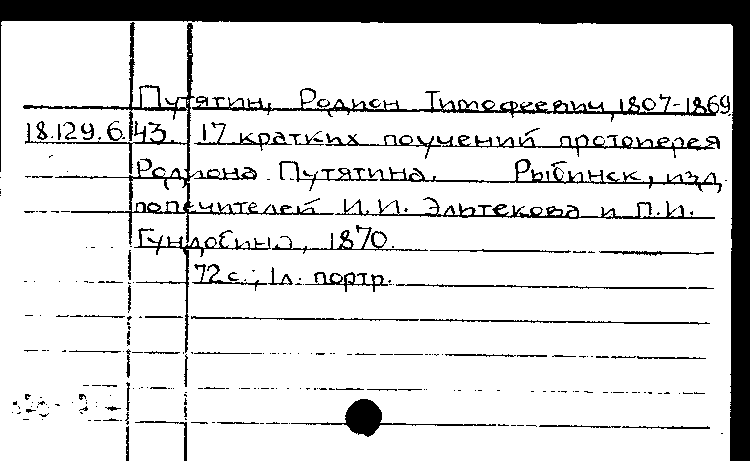 Путятин, Родион Тимофеевич, 1807-1869
18.129.6.43. 17 кратких поучений протоиерея
Родиона Путятина. Рыбинск, изд.
попечителей И.И. Эльтекова и П.И.
Гундобина, 1870.
72 с.; 1 л. портр.